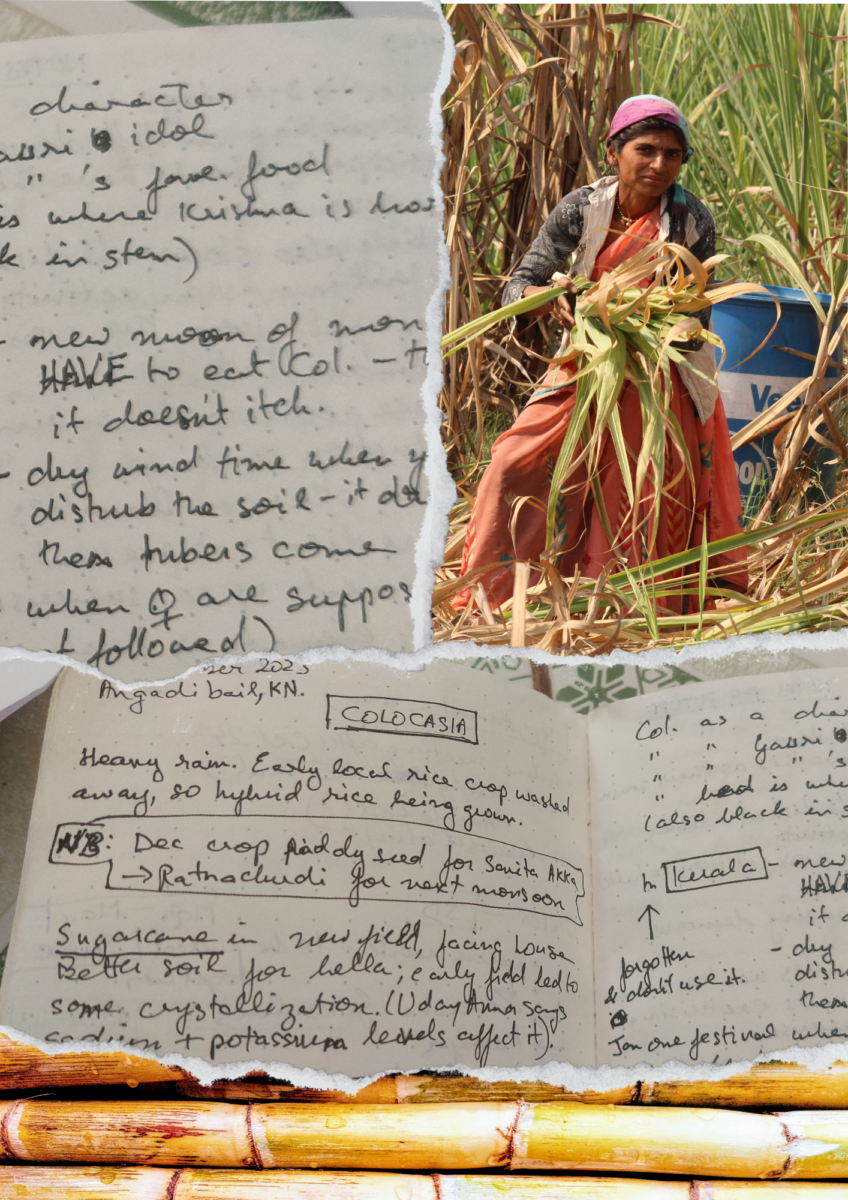 character
idol
" 's fave. food
is where Krishna is
in stem)
- new moon of mon
HAVE to eat Col. -
it doesn't itch.
- dry wind time when y
disturb the soil - it
them tubers come
when ♀ are suppos
followed)
Vee
2023
Angadibail, KN.
COLOCASIA
Heavy rain. Early local rice crop washed
away, so hybrid rice being grown.
NB: Dec crop paddy seed for Sunita Akka
→ Ratnachudi for next monsoon
Sugarcane in new field, facing house
Better soil for bella; early field led to
some crystallization. (Uday Anna says
sodium + potassium levels affect it).
Col. as a cha
" " Gauri
" " " 's
" is whe
(also black in s
In Kerala - new
HAVE
↑ it d
forgotten - dry
& don't use it. dist
them
Jan one festival when